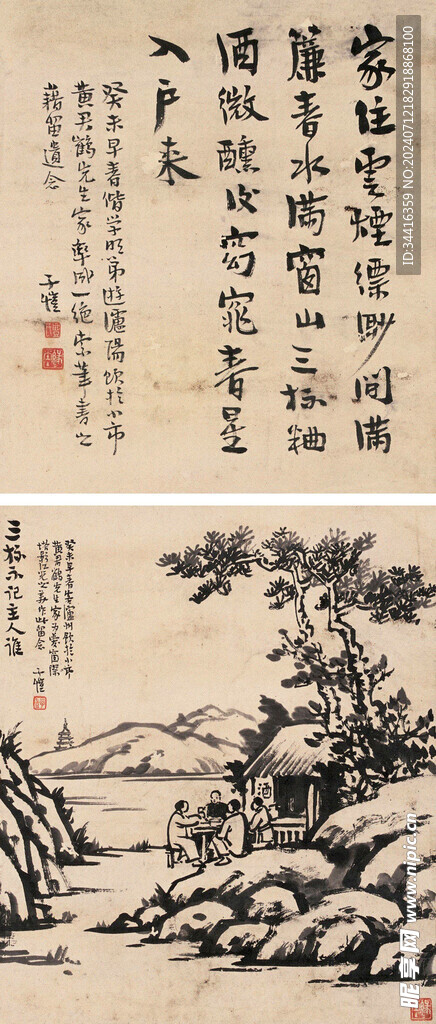 家住雲煙縹緲間滿
簾春水滿窗山三杯麯
酒微醺後窈窕春星
入戶来
癸未早春偕学明弟遊瀘陽飲於小市
黄君鶴先生家率成一绝索筆書之
藉留遺念
子愷
三杯不记主人誰
癸未早春客瀘州飲於小市
黄君鶴先生家
作此留念
子愷
酒
ID:34416359 NO:20240712182918868100
昵享网 www.nipic.cn